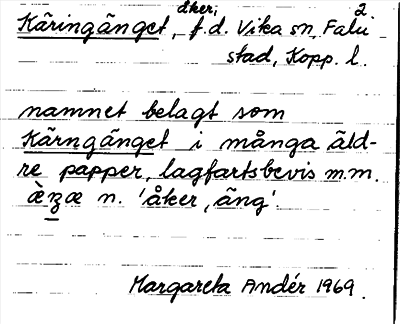 åker;
Käringänget, f.d. Vika sn, Falu 2
stad, Kopp. l.
namnet belagt som
Kärngänget i många äld-
re papper, lagfartsbevis m.m.
n. 'åker, äng'.
Margareta Andér 1969.